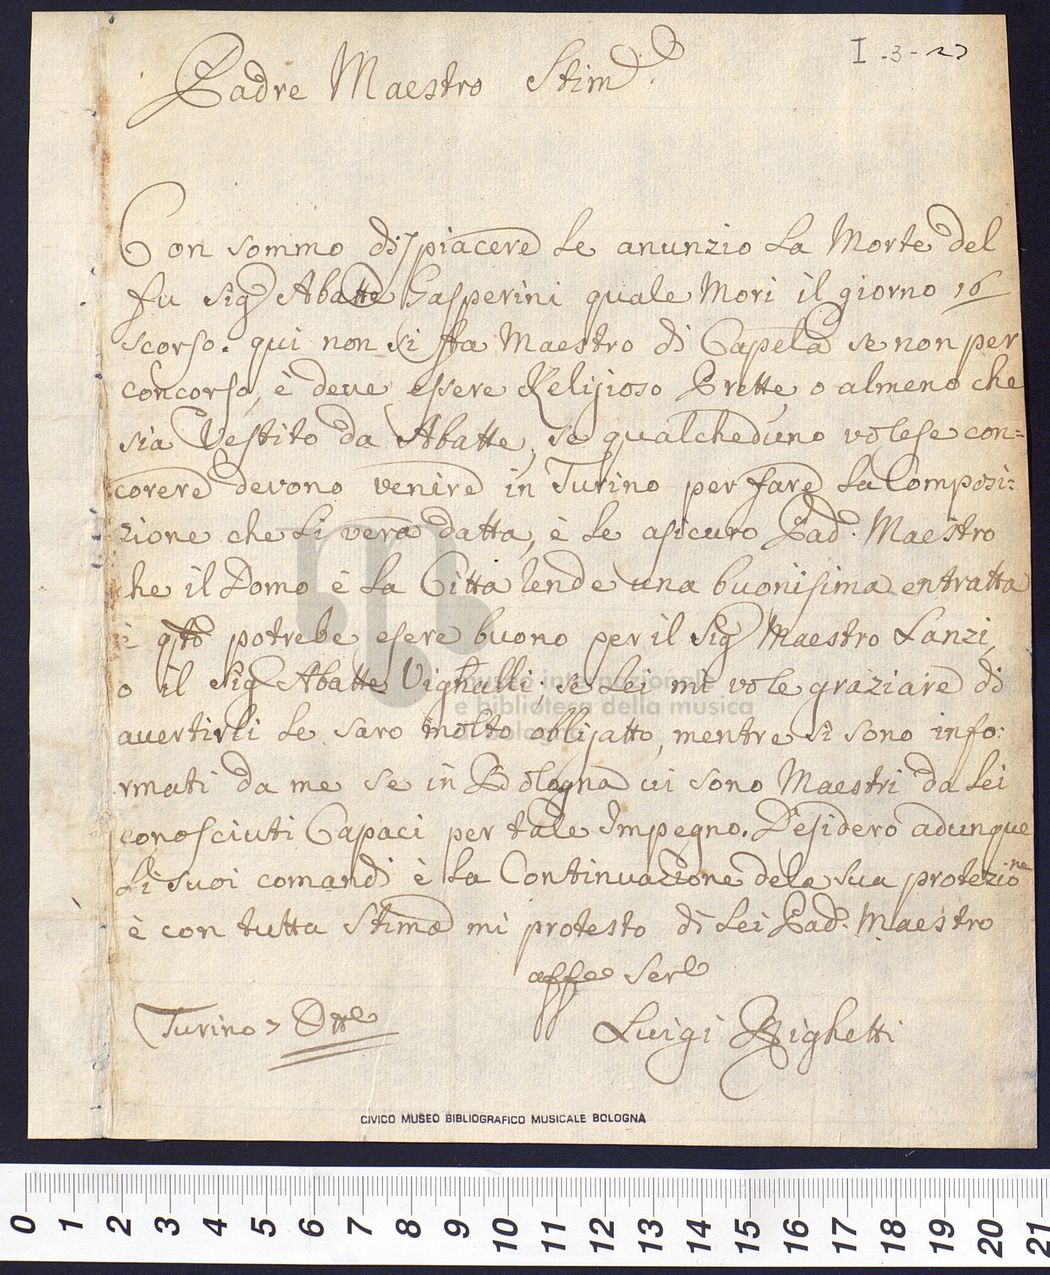 I-3-27
Padre Maestro Stim.º
Con sommo dispiacere le anunzio la Morte del
fu Sig.r Abatte Gasperini quale Morì il giorno 16
scorso. qui non si fa Maestro di Capela se non per
concorso, è deve essere Relijioso Prette, o almeno che
sia Vestito da Abatte, se qualcheduno volese con=
corere devono venire in Turino per fare la Composi:
zione che li verà datta, è le asicuro Pad. Maestro
che il Domo è la Citta lende una buonisima entratta
è qto potrebe esere buono per il Sig Maestro Lanzi,
o il Sig Abatte Vignalli; se Lei mi vole graziare di
avertirli le saro molto obblijatto, mentre si sono info:
rmati da me se in Bologna vi sono Maestri da Lei
conosciuti Capaci per tale Impegno. Desidero adunque
li suoi comandi è la Continuazione dela sua protezione
è con tutta Stima mi protesto di Lei Pad. Maestro
affe Serl
Turino 7 Ottе
Luigi Righetti
museo internazionale
e biblioteca della musica
di bologna
CIVICO MUSEO BIBLIOGRAFICO MUSICALE BOLOGNA
0 1 2 3 4 5 6 7 8 9 10 11 12 13 14 15 16 17 18 19 20 21